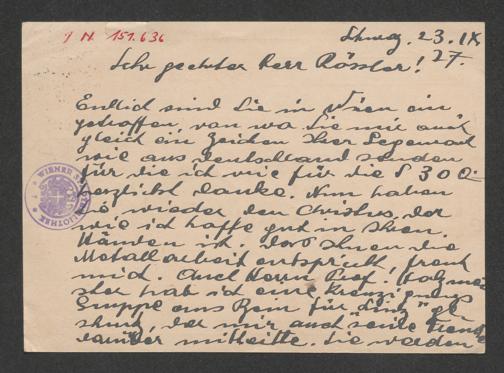 I N 151.636
Schwaz, 23. IX.
27.
Sehr geehrter Herr Rössler!
Endlich sind Sie in Wien ein
getroffen von wo Sie mir auch
gleich ein Zeichen Ihrer Gegenwart
wie aus Deutschland sandten
für die ich wie für die S 30 0.-
herzlichst danke. Nun haben
Sie wieder den Christus, der
wie ich hoffe gut in Ihren
Händen ist. Das Ihnen die
Metallarbeit entspricht, freut
mich. Auch Herrn Prof. Holzmei
ster hab ich eine Kreuzigungs
Gruppe aus Bein für Linz
der mir auch seine Freude
darüber mitteilte. Sie werden
WIENER STADTBIBLIOTHEK